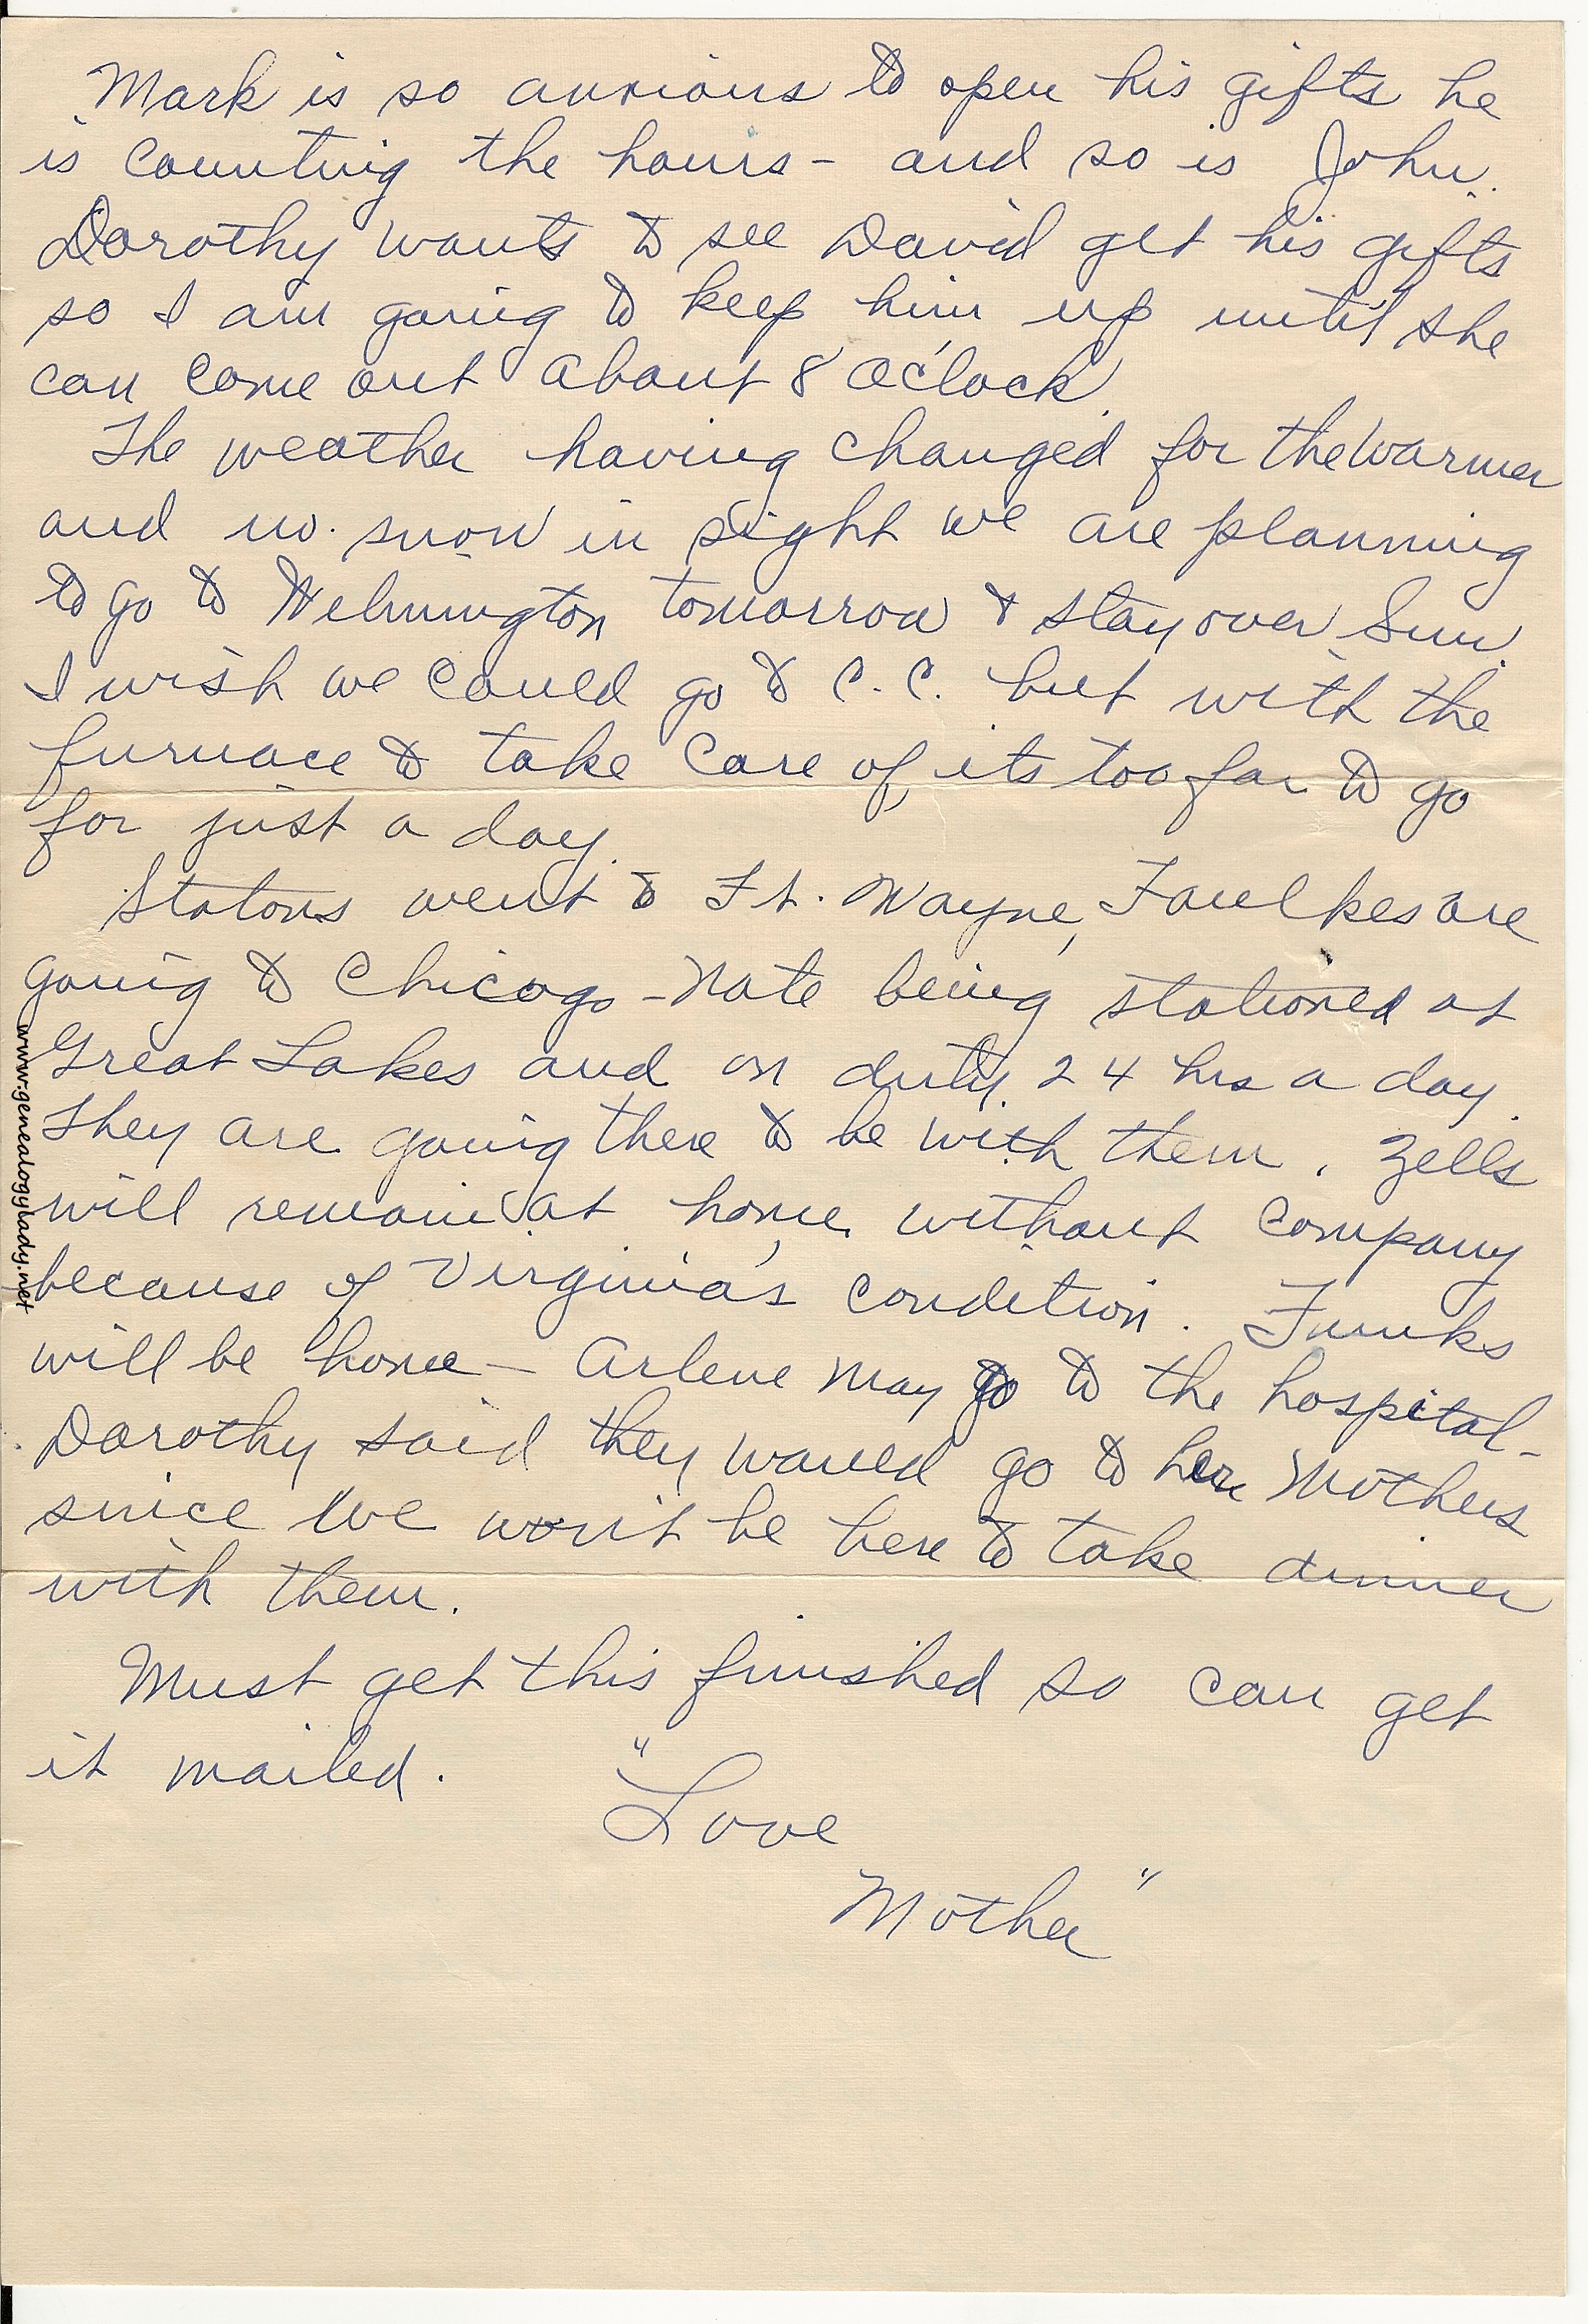 Mark is so anxious to open his gifts he
is counting the hours - and so is John.
Dorothy wants to see David get his gifts
so I am going to keep him up until she
can come out about 8 O'clock.
The weather having changed for the warmer
and no snow in sight we are planning
to go to Wilmington tomorrow & stay over Sun.
I wish we could go to C.C. but with the
furnace to take care of, its too far to go
for just a day.
Statons went to Ft. Wayne, Faulkes are
going to Chicago - Nate being stationed at
Great Lakes and on duty 24 hrs a day.
They are going there to be with them. Zells
will remain at home without company
because of Virginia's condition. Funks
will be home - Arlene may go to the hospital -
Dorothy said they would go to her Mothers
since we won't be here to take dinner
with them.
Must get this finished so can get
it mailed.
"Love
Mother"
www.genealogylady.net